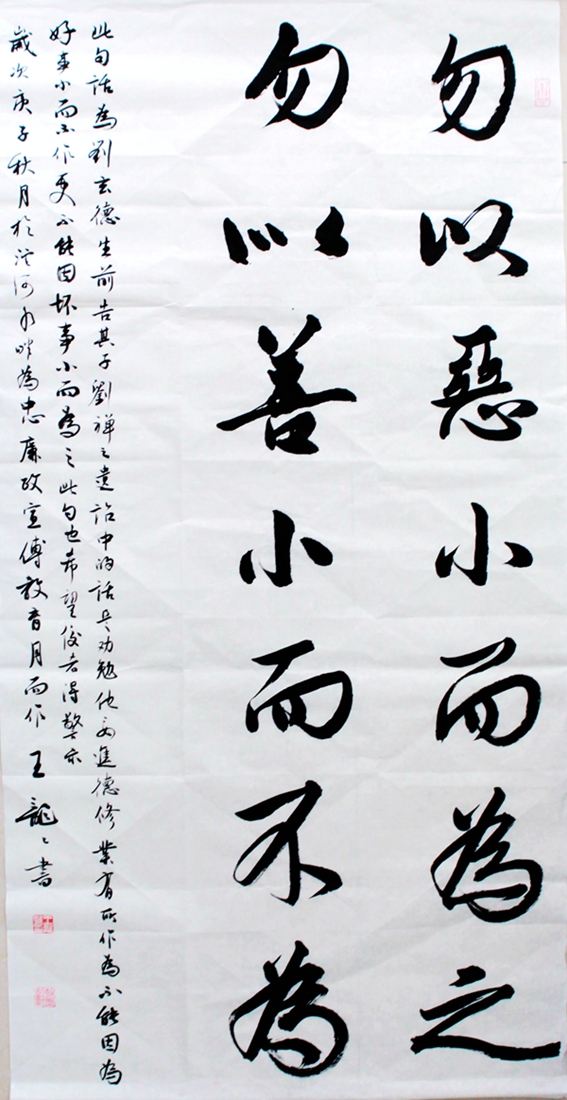 勿以惡小而為之
勿以善小而不為
此句話為劉玄德生前告其子劉禅之遗诏中的話是劝勉他要進德修業有所作為不能因為
好事小而不作更不能因坏事小而為之此句也希望後者得警示
歲次庚子秋月於河畔為忠廉政宣傳教育月而作王龍龍書